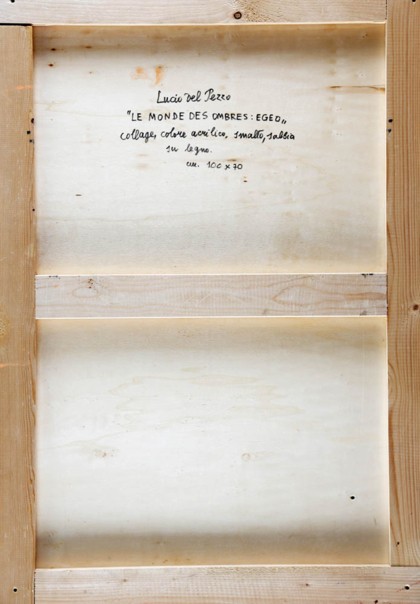 Lucio Del Pezzo
"LE MONDE DES OMBRES: EGEO,,
collage, colore acrilico, smalto, sabbia
su legno.
cm. 100 x 70